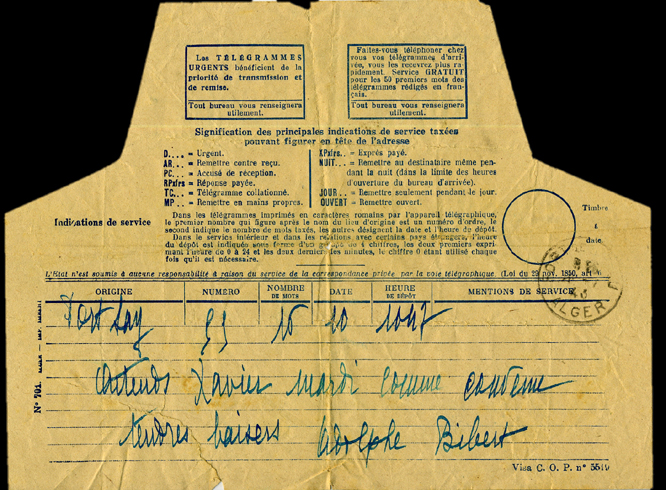 Les TÉLÉGRAMMES
URGENTS bénéficient de la
priorité de transmission et
de remise.
Tout bureau vous renseignera
utilement.
Faites-vous téléphoner chez
vous vos télégrammes d'arri-
vée, vous les recevrez plus ra-
pidement. Service GRATUIT
pour les 50 premiers mots des
télégrammes rédigés en fran-
çais.
Tout bureau vous renseignera
utilement.
Signification des principales indications de service taxées
pouvant figurer en tête de l'adresse
D... = Urgent.
AR... = Remettre contre reçu.
PC... = Accusé de réception.
RPxfrs = Réponse payée.
TC... = Télégramme collationné.
MP... = Remettre en mains propres.
XPxfrs... = Exprès payé.
NUIT... = Remettre au destinataire même pen-
dant la nuit (dans la limite des heures
d'ouverture du bureau d'arrivée).
JOUR... = Remettre seulement pendant le jour.
OUVERT = Remettre ouvert.
Indications de service
Timbre
à
date.
Dans les télégrammes imprimés en caractères romains par l'appareil télégraphique,
le premier nombre qui figure après le nom du lieu d'origine est un numéro d'ordre, le
second indique le nombre de mots taxés, les autres désignent la date et l'heure de dépôt.
Dans le service intérieur et dans les relations avec certains pays étrangers, l'heure
du dépôt est indiquée sous forme d'un groupe de 4 chiffres, les deux premiers expri-
mant l'heure de 0 à 24 et les deux derniers les minutes, le chiffre 0 étant utilisé chaque
fois qu'il est nécessaire.
L'État n'est soumis à aucune responsabilité à raison du service de la correspondance privée par la voie télégraphique. (Loi du 29 nov. 1850, art.
ORIGINE NUMÉRO NOMBRE DE MOTS DATE HEURE DE DÉPÔT MENTIONS DE SERVICE
ALGER
Port 15 10 1047
Attends Xavier mardi comme convenu
tendres baisers Adolphe Bibert
N° 701.
Visa C. O. P. n° 5519